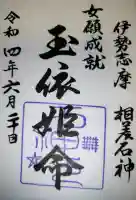 伊勢志摩 相差石神
女願成就
玉依姫命
令和四年六月二十日